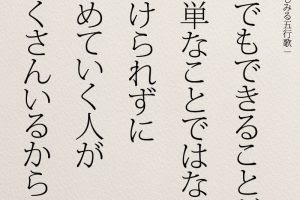 しみる五行歌
でもできること
単なことではな
けられずに
めていく人が
くさんいるから